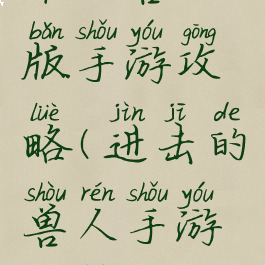 bǎn shǒu yóu gōng
版手游攻
lüè jìn jī de
略(进击的
shòu rén shǒu yóu
兽人手游